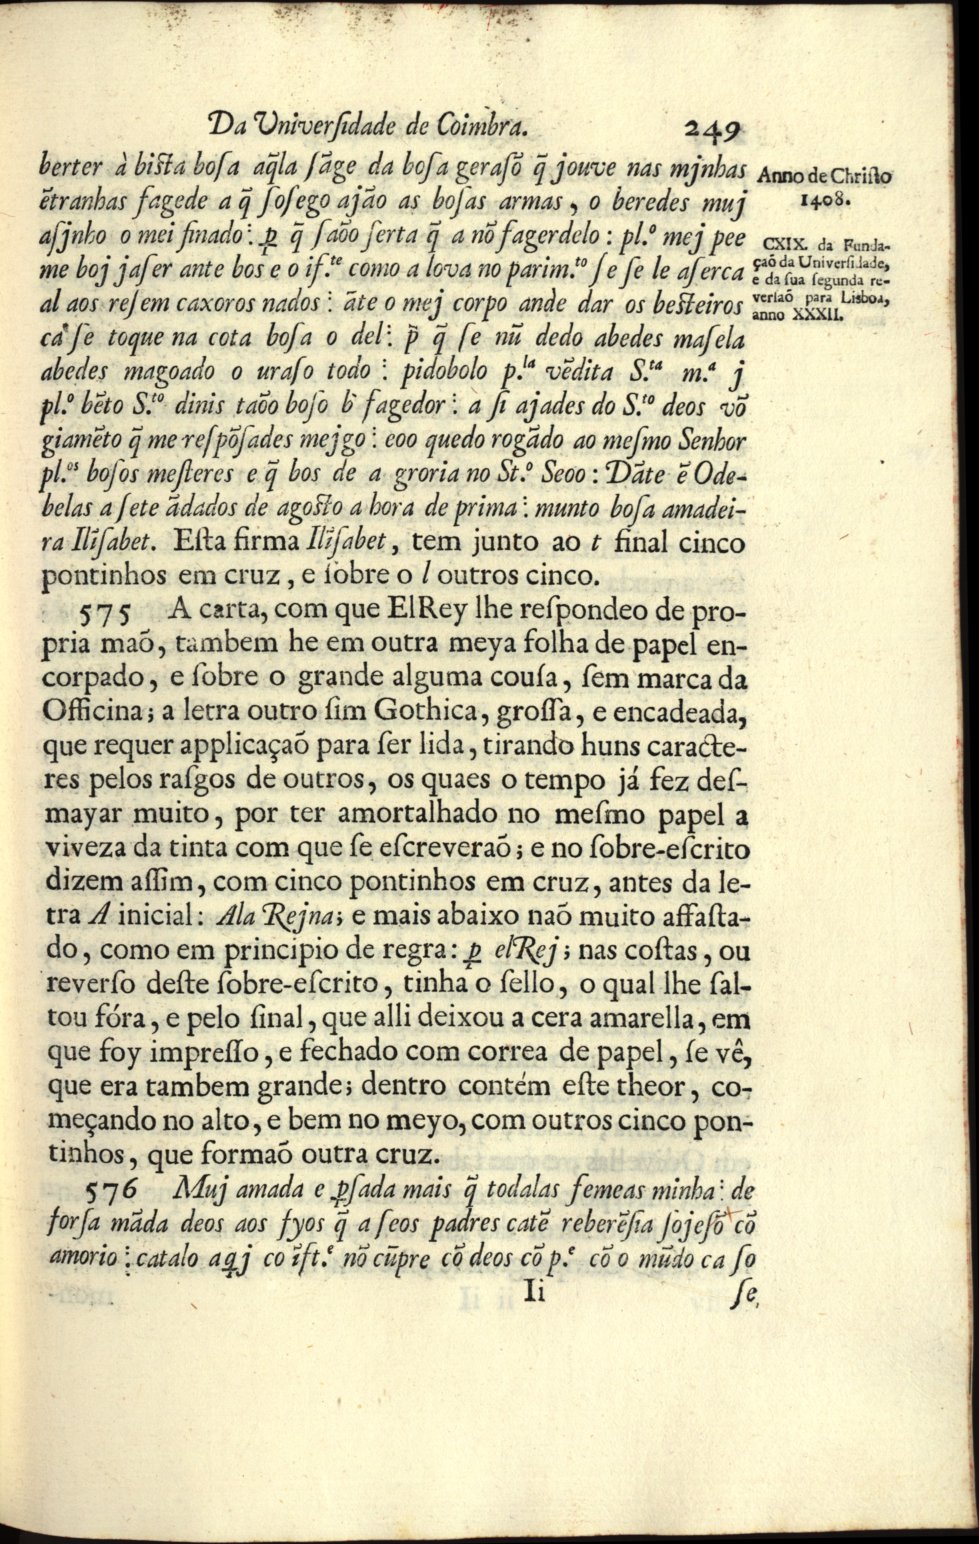 Da Univerſidade de Coimbra. 249
berter à biſta boſa aq̃la ſãge da boſa geraſõ q̃ jouve nas mjnhas
ẽtranhas fagede a q̃ ſoſego ajão as boſas armas, o beredes muj
aſjnho o mei finado: ꝑ q̃ ſaõo ſerta q̃ a nõ fagerdelo: pl.º mej pee
me boj jaſer ante bos e o iſ.te como a lova no parim.to ſe ſe le aſerca
al aos reſem caxoros nados: ãte o mej corpo ande dar os beſteiros
ca ſe toque na cota boſa o del: p̃ q̃ ſe nũ dedo abedes maſela
abedes magoado o uraſo todo: pidobolo p.la vẽdita S.ta m.a j
pl.º bẽto S.to dinis taõo boſo b fagedor: a ſi ajades do S.to deos võ
giamẽto q̃ me reſpõſades mejgo: eoo quedo rogãdo ao meſmo Senhor
pl.os boſos meſteres e q̃ bos de a groria no St.º Seoo: Dãte ẽ Ode-
belas a ſete ãdados de agoſto a hora de prima: munto boſa amadei-
ra Ilĩſabet. Eſta firma Ilĩſabet, tem junto ao t final cinco
pontinhos em cruz, e ſobre o l outros cinco.
575 A carta, com que ElRey lhe reſpondeo de pro-
pria maõ, tambem he em outra meya folha de papel en-
corpado, e ſobre o grande alguma couſa, ſem marca da
Officina; a letra outro ſim Gothica, groſſa, e encadeada,
que requer applicaçaõ para ſer lida, tirando huns caracte-
res pelos raſgos de outros, os quaes o tempo já fez deſ-
mayar muito, por ter amortalhado no meſmo papel a
viveza da tinta com que ſe eſcreveraõ; e no ſobre-eſcrito
dizem aſſim, com cinco pontinhos em cruz, antes da le-
tra A inicial: Ala Rejna; e mais abaixo naõ muito affaſta-
do, como em principio de regra: ꝑ elRej; nas coſtas, ou
reverſo deſte ſobre-eſcrito, tinha o ſello, o qual lhe ſal-
tou fóra, e pelo ſinal, que alli deixou a cera amarella, em
que foy impreſſo, e fechado com correa de papel, ſe vê,
que era tambem grande; dentro contém eſte theor, co-
meçando no alto, e bem no meyo, com outros cinco pon-
tinhos, que formaõ outra cruz.
576 Muj amada e ꝑſada mais q̃ todalas femeas minha: de
forſa mãda deos aos fyos q̃ a ſeos padres catẽ reberẽſia ſojeſõ cõ
amorio: catalo aqj co ĩſt.e nõ cũpre cõ deos cõ p.e cõ o mũdo ca ſo
Ii ſe
Anno de Chriſto
1408.
CXIX. da Funda-
çaõ da Univerſidade,
e da ſua ſegunda re-
verſaõ para Lisboa,
anno XXXII.